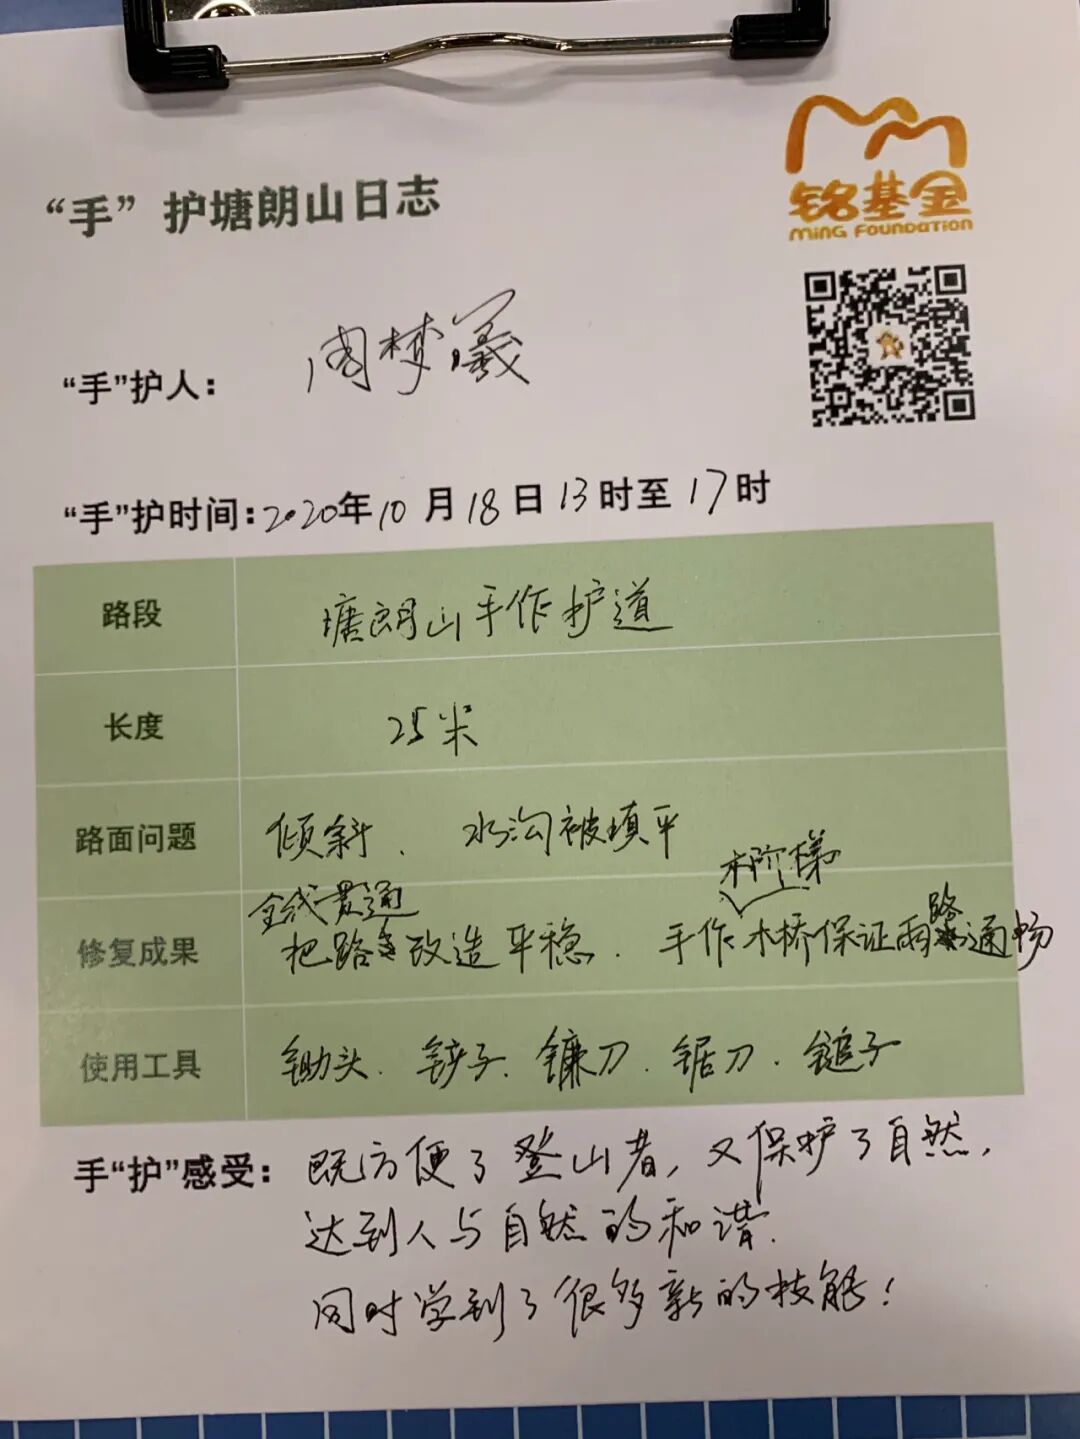 铭基金
MING FOUNDATION
“手”护塘朗山日志
“手”护人： 周梦羲
“手”护时间：2020年10月18日13时至17时
路段 塘朗山手作护道
长度 25米
路面问题 倾斜、 水沟被填平
全线贯通 木阶梯
修复成果 把路改造平稳. 手作木桥保证雨路通畅
使用工具 锄头、铲子、镰刀、锯刀、锤子
手“护”感受：既方便了登山者，又保护了自然，
达到人与自然的和谐.
同时学到了很多新的技能！